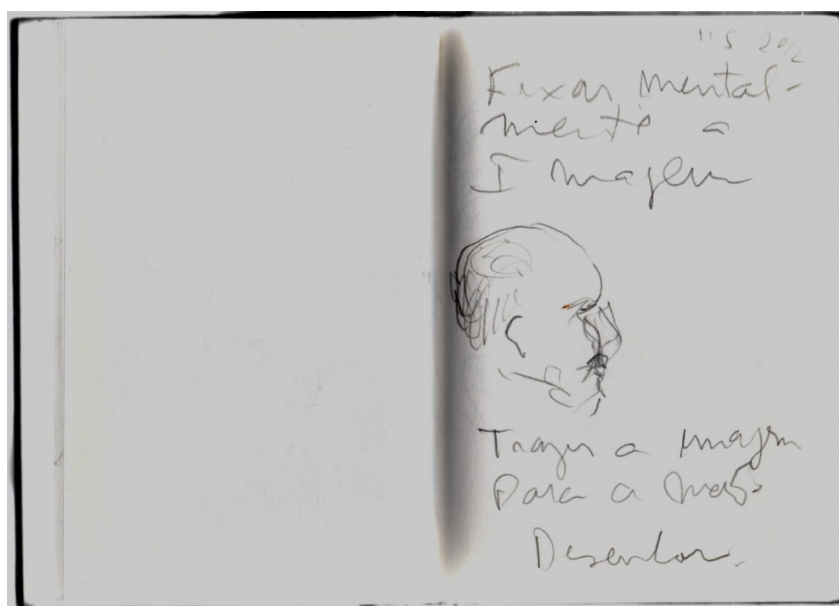 11 5 2012
Fixar mental-
mente a
Imagem
Trazer a imagem
para a mão.
Desenhar.